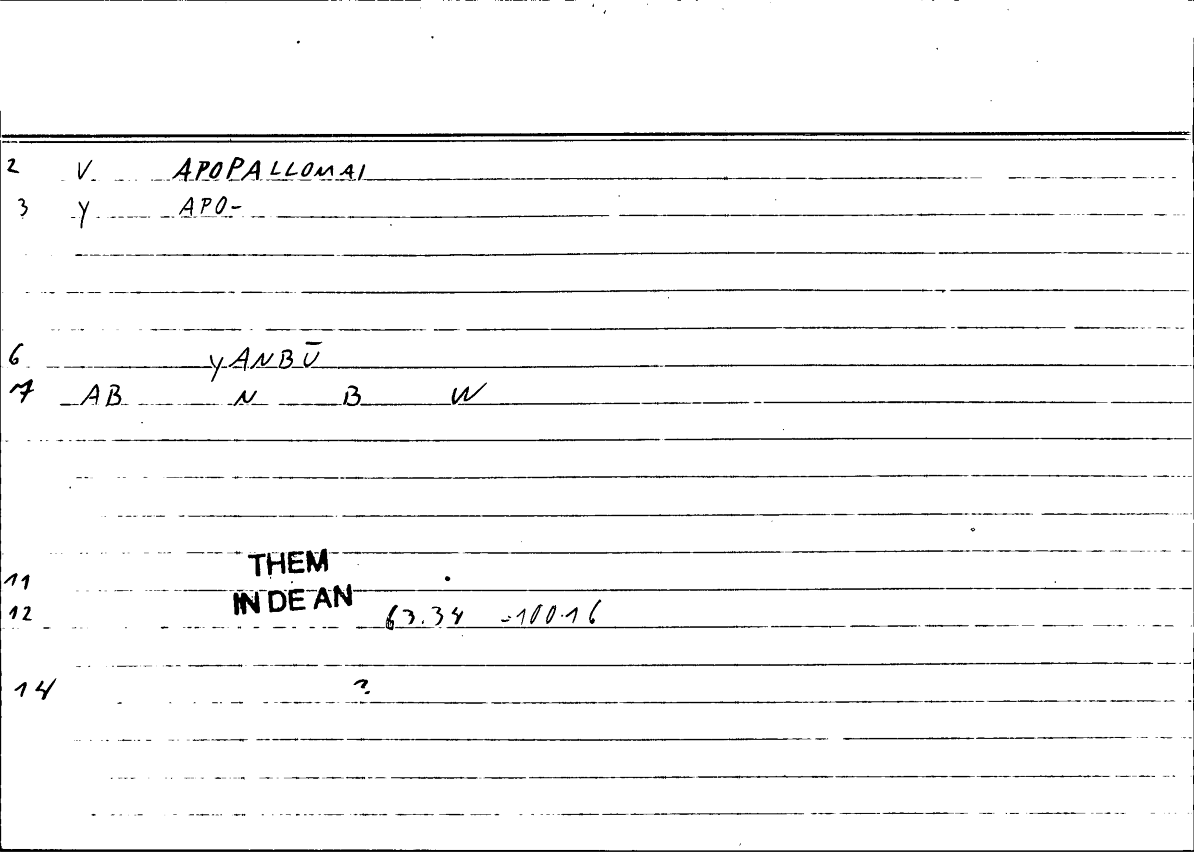 2 V APOPALLOMAI
3 Y APO-
6 YANBŪ
7 AB N B W
THEM
11
IN DE AN
12 63.34 -100.16
14 ?